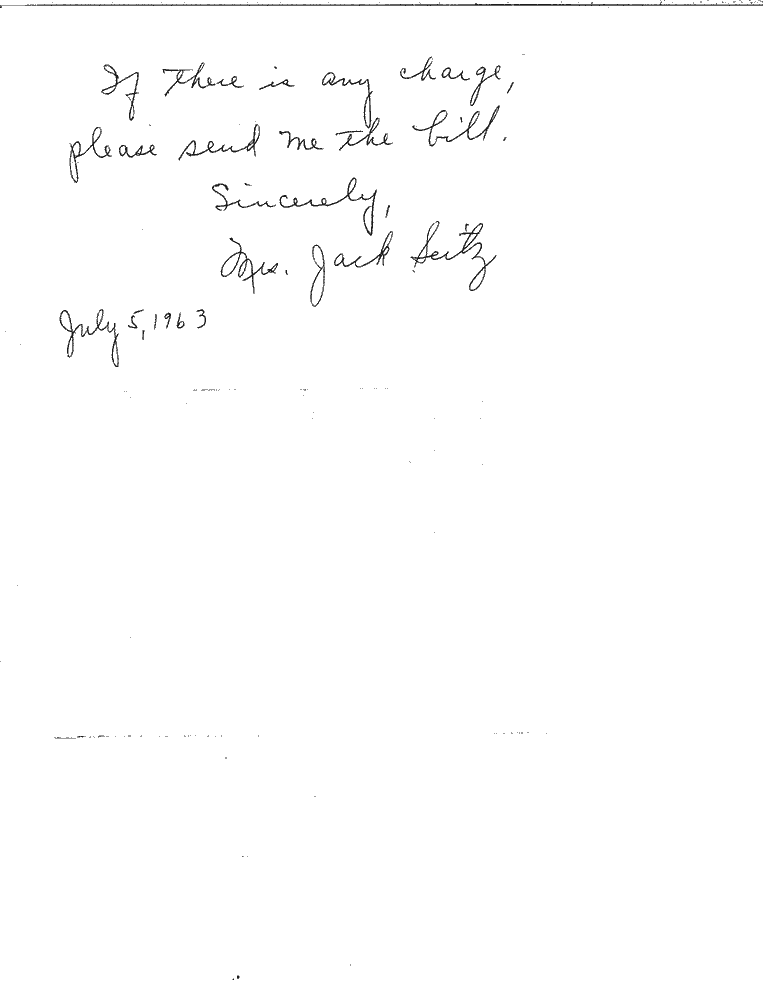 If there is any charge,
please send me the bill.
Sincerely,
Mrs. Jack Seitz
July 5, 1963